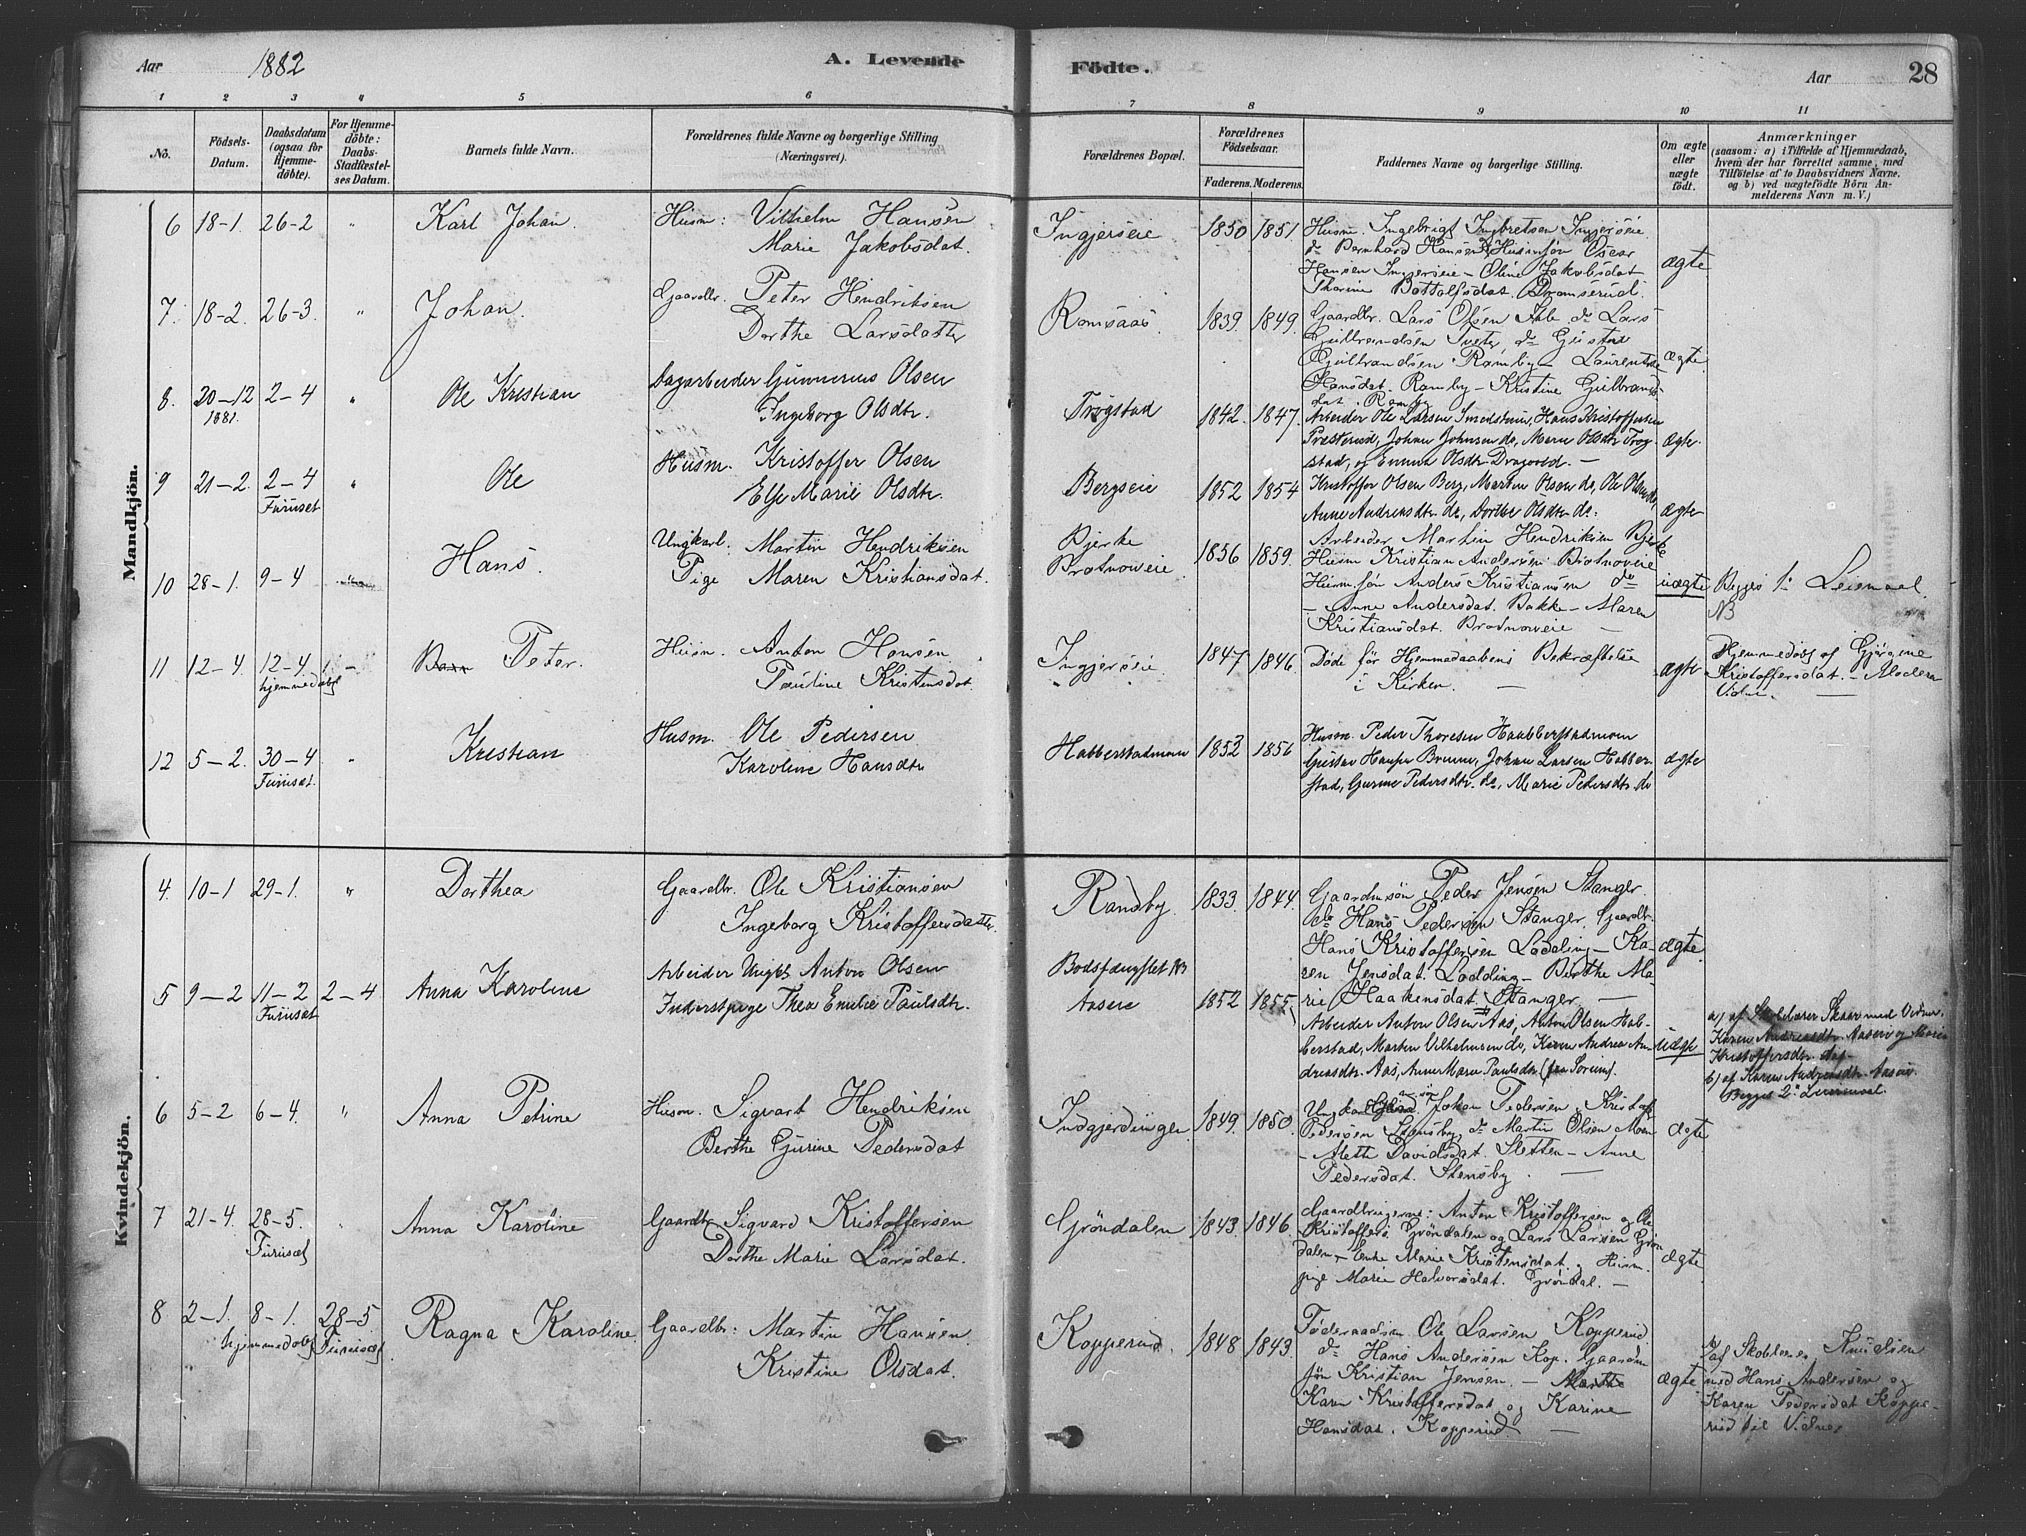 Aar 1882 A. Levende Födte. Aar 28
1 2 3 4 5 6 7 8 9 10 11
No.
Födsels-
Datum.
Daabsdatum
(ogsaa for
Hjemme-
döbte).
For Hjemme-
döbte:
Daabs-
Stadfæstel-
ses Datum.
Barnets fulde Navn.
Forældrenes fulde Navne og borgerlige Stilling
(Næringsvei).
Forældrenes Bopæl.
Forældrenes
Födselsaar.
Faderens. Moderens.
Faddernes Navne og borgerlige Stilling.
Om ægte
eller
uægte
födt.
Anmærkninger
(saasom: a) i Tilfælde af Hjemmedaab,
hvem der har forrettet samme, med
Tilföielse af to Daabsvidners Navne.
og b) ved uægtefödte Börn An-
melderens Navn m. V.)
Mandkjön.
6 18-1. 26-2 " Karl Johan.
Husm: Vilhelm Hansen
Marie Jakobsdat.
Ingjerseie 1850 1851
Husm. Ingebrigt Ingbretsen Ingjerseie
do Bernhard Hansen Husmsön Oscar
Hansen Ingjerseie - Oline Jakobsdat
Thorine Bottolfsdat.
ægte
7. 18-2. 26-3. " Johan.
Gaardbr. Peter Hendriksen
Dorthe Larsdatter
Romsaas. 1839. 1849.
Gaardbr. Lars Olsen do Lars
Gulbrandsen Tveter do Gustav
Gulbrandsen Ramby - Laurentse
Hansdat. Ramby - Kristine Gulbrands-
dat. Ramby
ægte
8. 20-12 1881. 2-4 " Ole Kristian
Dagarbeider Gunnerius Olsen
Ingeborg Olsdtr.
Trøgstad 1842. 1847.
Arbeider Ole Larsen Smedstuen, Hans Kristoffersen
Præsterud, Johan Johnsen do, Maren Olsdtr. Trøg-
stad, og Emma Olsdtr. Dragvold. -
ægte.
9 21-2. 2-4 Furuset " Ole
Husm. Kristoffer Olsen
Else Marie Olsdtr.
Bergseie 1852 1854
Kristoffer Olsen Berg, Martin Olsen do, Ole Olsen do,
Anne Andreasdtr. do, Dorthe Olsdtr. do.
ægte
10 28-1. 9-4 " Hans.
Ungkarl: Martin Hendriksen
Pige Maren Kristiansdat.
Bjerke
1856 1859.
Arbeider Martin Hendriksen Bjerke
Husm Kristian Andersen
Husmsön Anders Kristiansen do
- Anne Andersdat. Bakke - Maren
Kristiansdat.
uægte
Begges 1ste Leiermaal.
NB
11 12-4. 12-4. hjemmedøbt - Barn Peter.
Husm. Anton Hansen
Pauline Kristensdat.
Ingjerseie 1847 1846.
Døde før Hjemmedaabens Bekræftelse
i Kirken. -
ægte
Hjemmedøbt af Gjørgine
Kristoffersdat. - Moderen
Vidne. -
12 5-2. 30-4 Furuset. " Kristian
Husm. Ole Pedersen
Karoline Hansdtr
Habberstadmoen 1852 1856
Husm. Peder Thoresen Habberstadmoen
Gustav Hansen Brenne, Johan Larsen Habber-
stad, Gurine Pedersdtr. do., Marie Pedersdtr. do
ægte
Kvindekjön.
4 10-1 29-1. " Dorthea
Gaardbr. Ole Kristiansen
Ingeborg Kristoffersdatter.
Randby. 1833. 1844.
Gaardmsön Peder Jensen Stanger
do Hans Pedersen Stanger. Gaardbr.
Hans Kristoffersen Lødding - Ka-
ren Jensdat. Lødding - Berthe Ma-
rie Haakensdat. Stanger. -
ægte.
5 9-2 11-2 Furuset 2-4 Anna Karoline
Arbeider Ungk. Anton Olsen
Inderstpige Thea Emilie Paulsdtr.
Bodsfængslet NB
Aaseie 1852 1855.
Arbeider Anton Olsen Aas, Anton Olsen Hab-
berstad, Martin Vilhelmsen do, Karen Andrea An-
dreasdtr. Aas, Anne Marie Paulsdtr. (fra Sorum).
uægte
a) af Skolelærer Skaar med Vidner
Karen Andreasdtr. Aaseie og Marie
Kristoffersdtr.
b) af Karen Andreasdtr. Aaseie.
Begges 2det Leiermaal.
6 5-2 6-4. " Anna Petrine
Husm. Sigvart Hendriksen
Berthe Gurine Pedersdat
Indgjerdingen. 1849. 1850.
Johan Pedersen, Kristof
Pedersen Stensby, do Martin Olsen Moen
- Mette Davidsdat. Sletten - Anne
Pedersdat. Stensby -
ægte
7 21-4. 28-5. Furuset " Anna Karoline
Gaardbr. Sigvard Kristoffersen
Dorthe Marie Larsdat.
Grøndalen 1843. 1846.
Gaardbrugerne: Anton Kristoffersen og Ole
Kristoffers. Grøndalen og Lars Larsen Grøn-
dalen, - Enke Marie Kristensdat. og Husm.
pige Marie Halvorsdat. Grøndal. -
ægte
8 2-1. 8-1. hjemmedøbt 28-5 Furuset. Ragna Karoline
Gaardbr: Martin Hansen
Kristine Olsdat.
Kopperud. 1848 1843.
Føderaadsm. Ole Larsen Kopperud.
do Hans Andersen Kop. Gaardm.
sön Kristian Jensen. - Marthe
Karen Kristoffersdat. og Karine
Hansdat. Kopperud -
ægte
af Skolelærer Knudsen
med Hans Andersen og
Karen Pedersdat Koppe-
rud til Vidner